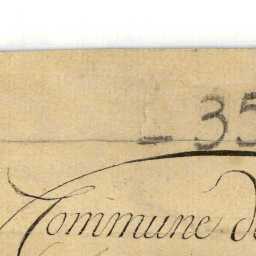 - 35
Commune de